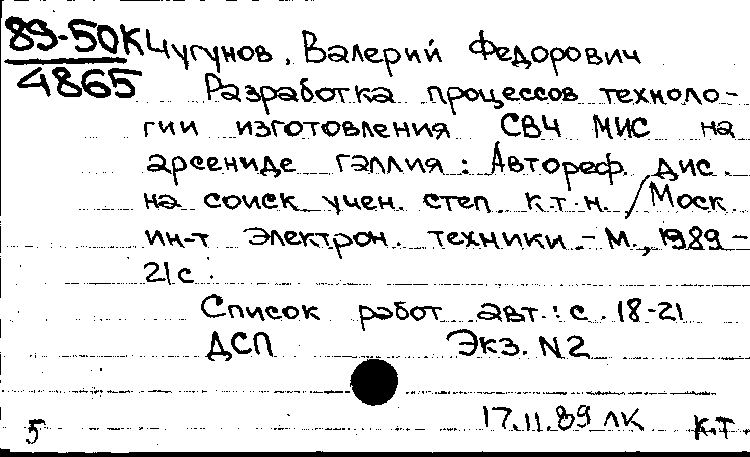 89-50К Чугунов, Валерий Федорович
4865 Разработка процессов техноло-
гии изготовления СВЧ МИС на
арсениде галлия : Автореф. дис.
на соиск учен. степ к.т.н. / Моск
ин-т электрон. техники. - М., 1989 -
21 с.
Список работ авт.: с. 18-21
ДСП Экз. N2
17.11.89 ЛК
5 К.Т.